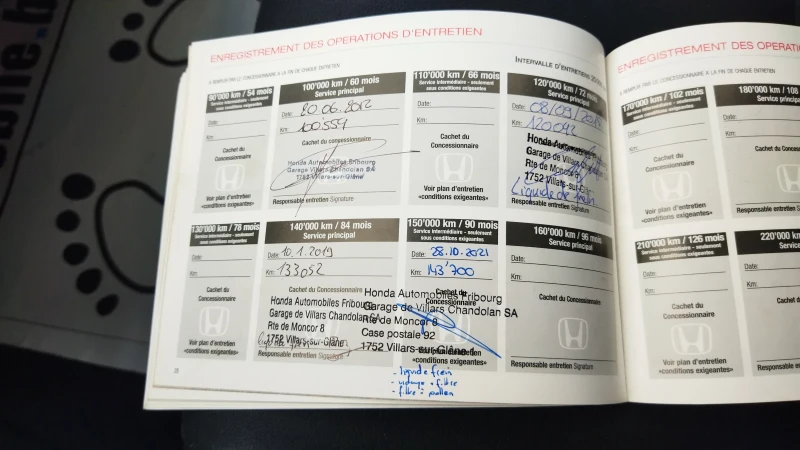 ENREGISTREMENT DES OPERATIONS D'ENTRETIEN
A REMPLIR PAR LE CONCESSIONNAIRE A LA FIN DE CHAQUE ENTRETIEN
90'000 km / 54 mois
Service intermédiaire - seulement
sous conditions exigeantes
Date:
Km:
Cachet du
Concessionnaire
Voir plan d'entretien
«conditions exigeantes»
100'000 km / 60 mois
Service principal
Date: 20.06.2012
Km: 100'559
Cachet du concessionnaire
Honda Automobiles Fribourg
Garage de Villars Chandolan SA
1752 Villars-sur-Glâne
Responsable entretien Signature
110'000 km / 66 mois
Service intermédiaire - seulement
sous conditions exigeantes
Date:
Km:
Cachet du
Concessionnaire
Voir plan d'entretien
«conditions exigeantes»
INTERVALLE D'ENTRETIENS
120'000 km / 72
Service principal
Date:
Km: 120092
Honda Automobiles
Garage de Villars
Rte de Moncor
1752 Villars-sur
Liquide de frein
Responsable entretien Signature
130'000 km / 78 mois
Service intermédiaire - seulement
sous conditions exigeantes
Date:
Km:
Cachet du
Concessionnaire
Voir plan d'entretien
«conditions exigeantes»
140'000 km / 84 mois
Service principal
Date: 10.1.2019
Km: 133052
Cachet du Concessionnaire
Honda Automobiles Fribourg
Garage de Villars Chandolan SA
Rte de Moncor 8
1752 Villars-sur-Glâne
Responsable entretien Signature
150'000 km / 90 mois
Service intermédiaire - seulement
sous conditions exigeantes
Date: 28.10.2021
Km: 143'700
Cachet du
Honda Automobiles Fribourg
Garage de Villars Chandolan SA
Rte de Moncor 8
Case postale 92
1752 Villars-sur-Glâne 1
«conditions exigeantes»
- liquide frein
- vidange + filtre
- filtre à pollen
160'000 km / 96 mois
Service principal
Date:
Km:
Cachet du Concessionnaire
Responsable entretien Signature
ENREGISTREMENT DES
A REMPLIR PAR LE CONCESSIONNAIRE A LA FIN DE CHAQUE ENTRETIEN
170'000 km / 102 mois
Service intermédiaire - seulement
sous conditions exigeantes
Date:
Km:
Cachet du
Concessionnaire
Voir plan d'entretien
«conditions exigeantes»
180'000 km / 108
Service principal
Date:
Km:
Cachet du
Responsable entretien
210'000 km / 126 mois
Service intermédiaire - seulement
sous conditions exigeantes
Date:
Km:
Cachet du
Concessionnaire
Voir plan d'entretien
«conditions exigeantes»
220'000
Date:
Km:
Responsable